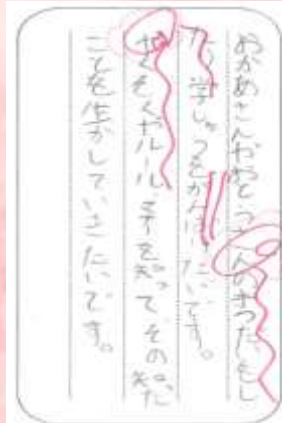 おかあさんやおとうさんの手つだいをし
たり学しゅうをがんばりたいです。
やくそくやルール、を知って、その知った
ことを生かしていきたいです。